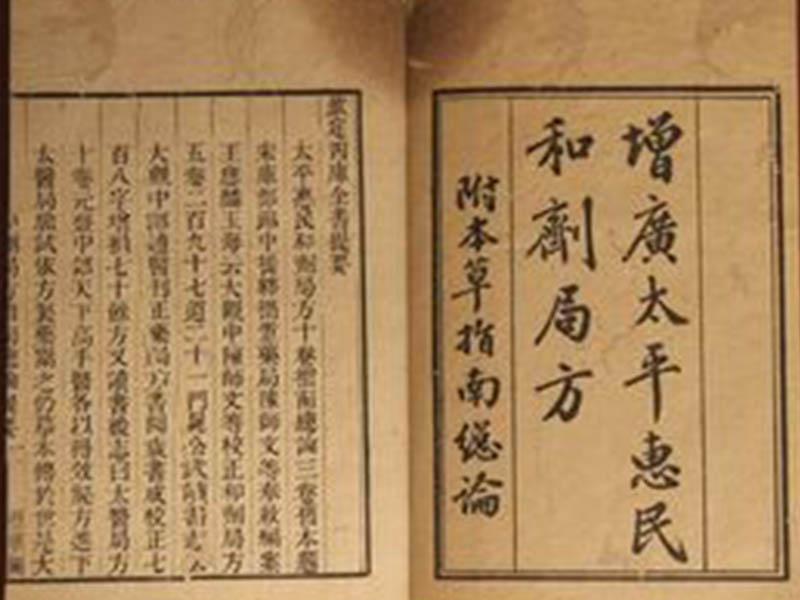 增廣太平惠民
和劑局方
附本草指南総論
欽定四庫全書提要
太平惠民和劑局方十卷附指南總論三卷舊本題
宋庫部郎中提轄措置藥局陳師文等奉敕編案
王應麟玉海云大觀中陳師文等校正和劑局方
五卷二百九十七道二十一門晁公武讀書志云
大觀中詔通醫刊正藥局方書閱歲書成校正七
百八字增損七十餘方又讀書後志曰太醫局方
十卷元豐中詔天下高手醫各以得效秘方進下
太醫局驗試依方製藥鬻之仍摹本傳於世是大